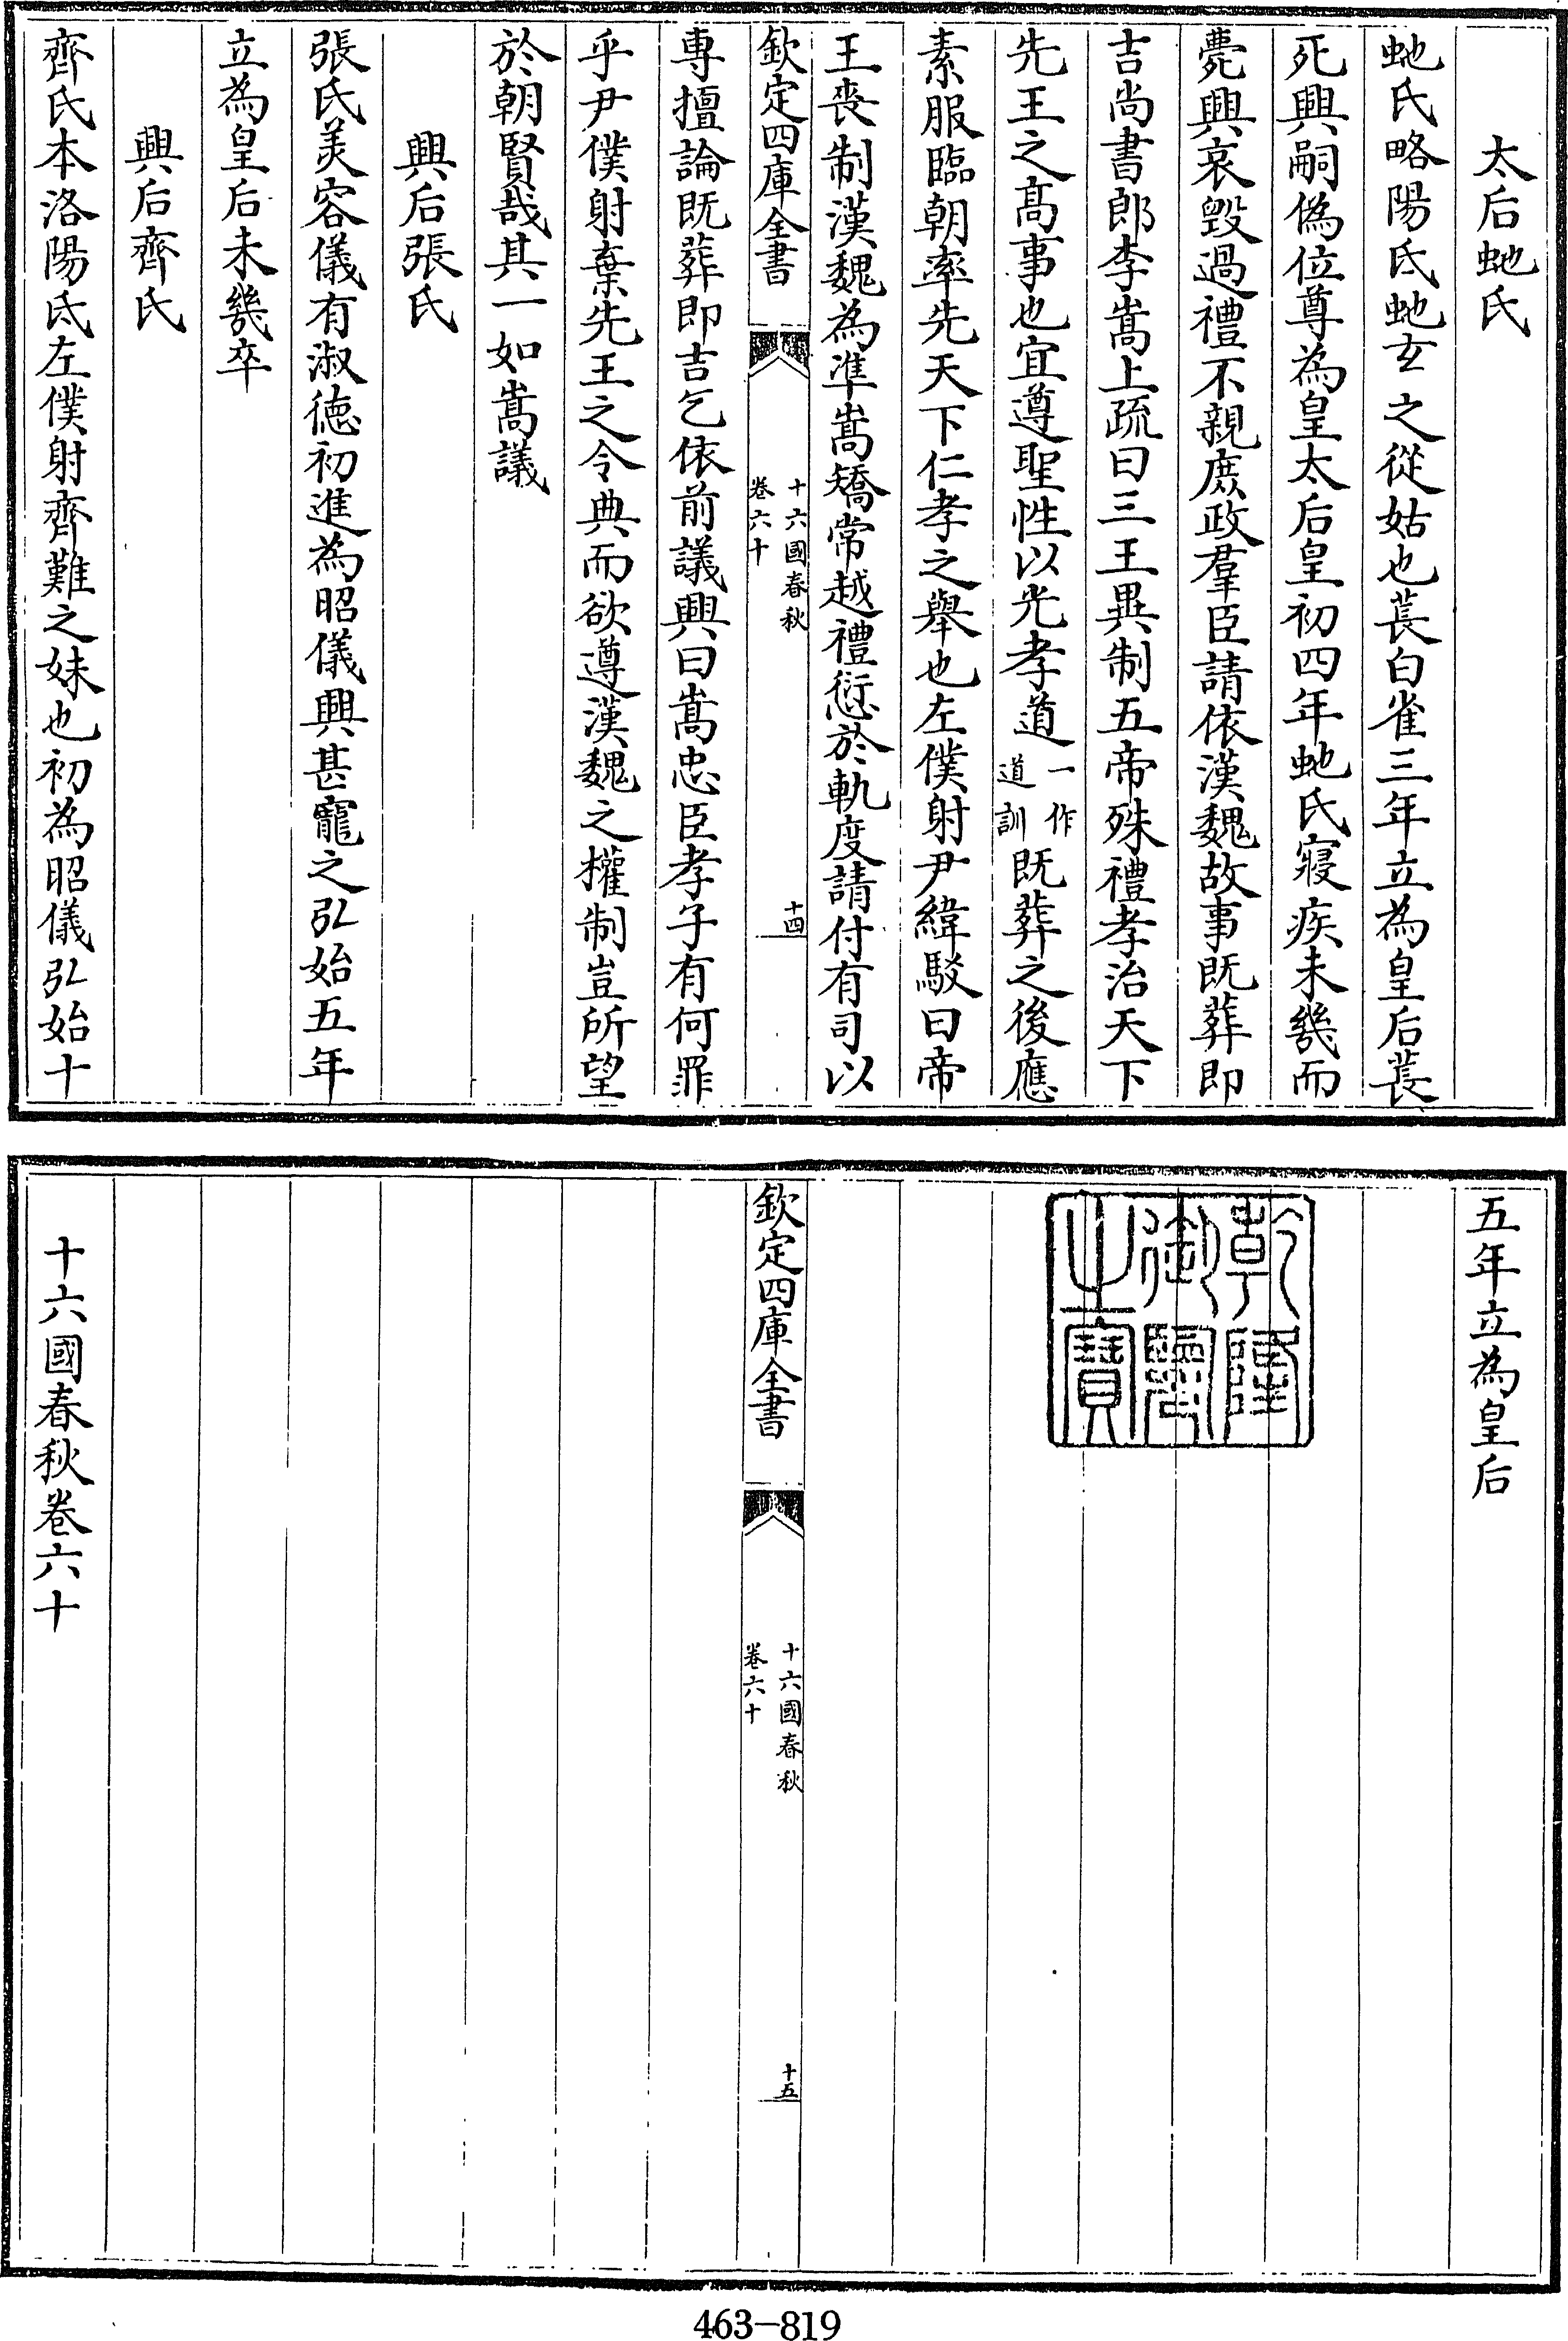 太后虵氏
虵氏略陽氐虵玄之從姑也萇白雀三年立為皇后萇
死興嗣偽位尊為皇太后皇初四年虵氏寢疾未幾而
薨興哀毀過禮不親庶政羣臣請依漢魏故事既葬即
吉尚書郎李嵩上疏曰三王異制五帝殊禮孝治天下
先王之髙事也宜遵聖性以光孝道一作道訓既葬之後應
素服臨朝率先天下仁孝之舉也左僕射尹緯駁曰帝
王喪制漢魏為準嵩矯常越禮愆於軌度請付有司以
欽定四庫全書
十六國春秋
卷六十
十四
專擅論既葬即吉乞依前議興曰嵩忠臣孝子有何罪
乎尹僕射棄先王之令典而欲遵漢魏之權制豈所望
於朝賢哉其一如嵩議
興后張氏
張氏美容儀有淑徳初進為昭儀興甚寵之弘始五年
立為皇后未幾卒
興后齊氏
齊氏本洛陽氐左僕射齊難之妹也初為昭儀弘始十
五年立為皇后
乾隆御覽之寶
欽定四庫全書
十六國春秋
卷六十
十五
十六國春秋卷六十
463-819